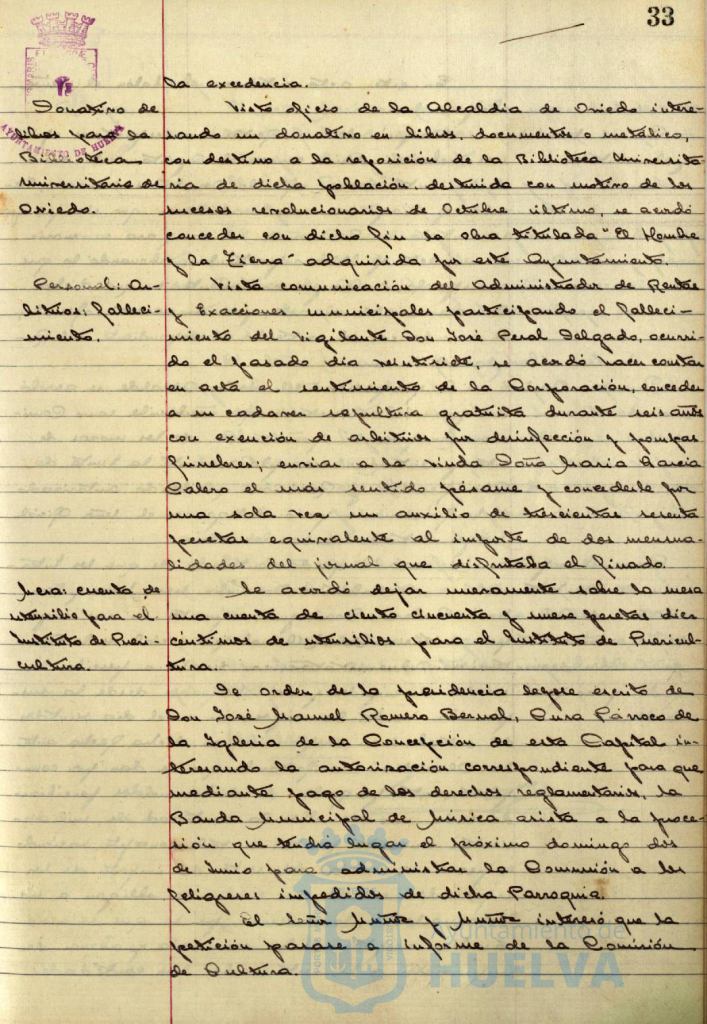 33
la excedencia.
Donativo de
libros para la
Biblioteca
Universitaria de
Oviedo.
Visto oficio de la Alcaldia de Oviedo intere-
sando un donativo en libros, documentos o metálico,
con destino a la reposición de la Biblioteca Universita
ria de dicha población, destruida con motivo de los
sucesos revolucionarios de Octubre último, se acordó
conceder con dicho fin la obra titulada "El Hombre
y la Tierra" adquirida por este Ayuntamiento.
Personal: Ar-
bitrios: falleci-
miento.
Vista comunicación del Administrador de Rentas
y Exacciones municipales participando el falleci-
miento del Vigilante Don José Peral Delgado, ocurri-
do el pasado dia veintisiete, se acordó hacer constar
en acta el sentimiento de la Corporación, conceder
a su cadaver sepultura gratuita durante seis años
con exención de arbitrios por desinfección y pompas
fúnebres; enviar a la viuda Doña Maria Garcia
Calero el más sentido pésame y concederle por
una sola vez un auxilio de trescientas sesenta
pesetas equivalente al importe de dos mensua-
lidades del jornal que disfrutaba el finado.
Mesa: cuenta de
utensilio para el
Instituto de Pueri-
cultura.
Se acordó dejar nuevamente sobre la mesa
una cuenta de ciento cincuenta y nueve pesetas diez
céntimos de utensilios para el Instituto de Puericul-
tura.
De orden de la presidencia leyose escrito de
Don José Manuel Romero Bernal, Cura Párroco de
la Iglesia de la Concepción de esta Capital in-
teresando la autorización correspondiente para que
mediante pago de los derechos reglamentarios, la
Banda Municipal de Música asista a la proce-
sión que tendrá lugar el próximo domingo dos
de Junio para administrar la Comunión a los
feligreses impedidos de dicha Parroquia.
El Señor Muñoz y Muñoz interesó que la
petición pasase a informe de la Comisión
de Cultura.
AYUNTAMIENTO DE HUELVA
Ayuntamiento de
HUELVA